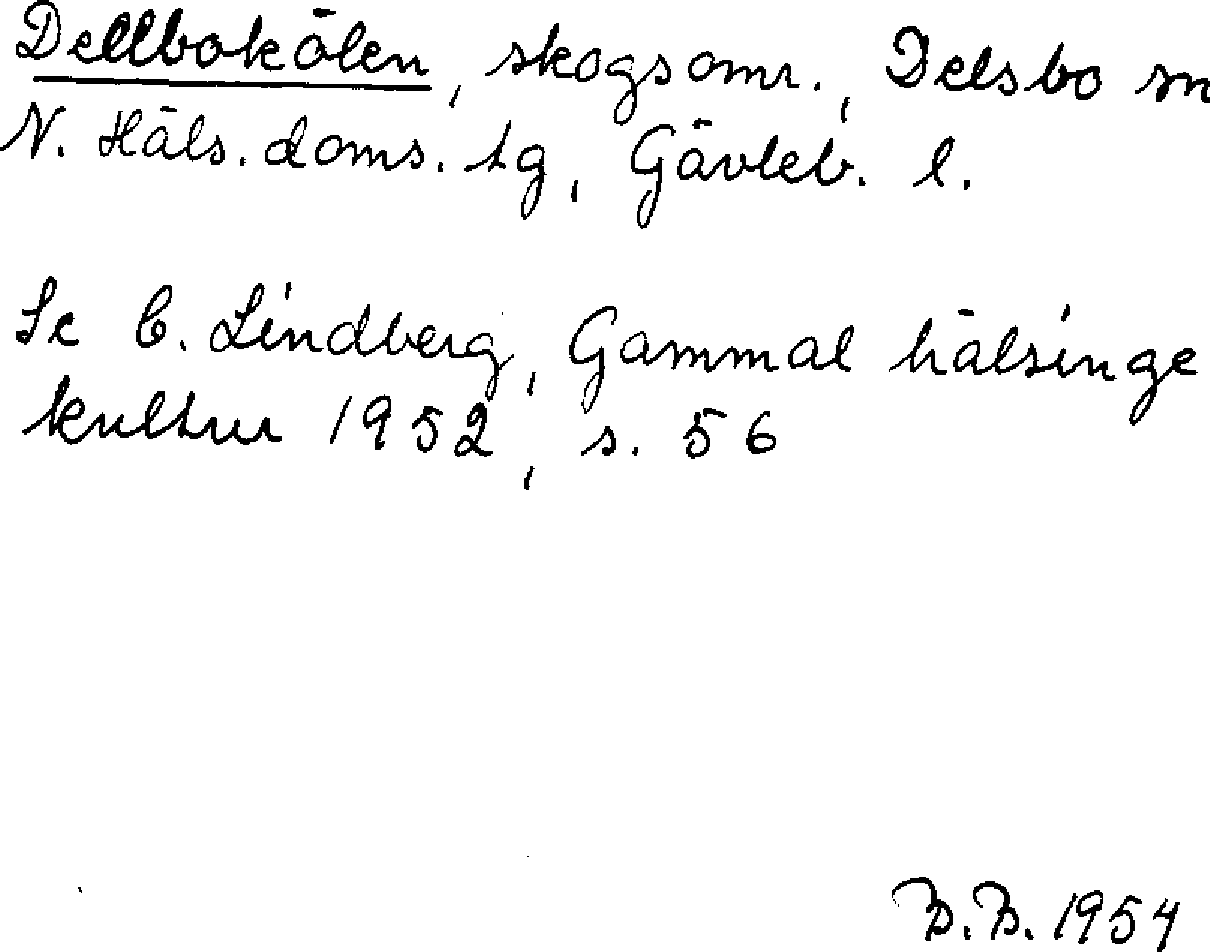 Dellbokölen, skogsomr., Delsbo sn
N. Häls. doms. tg, Gävleb. l.
Se C. Lindberg, Gammal hälsinge
kultur 1952, s. 56
B.B. 1954